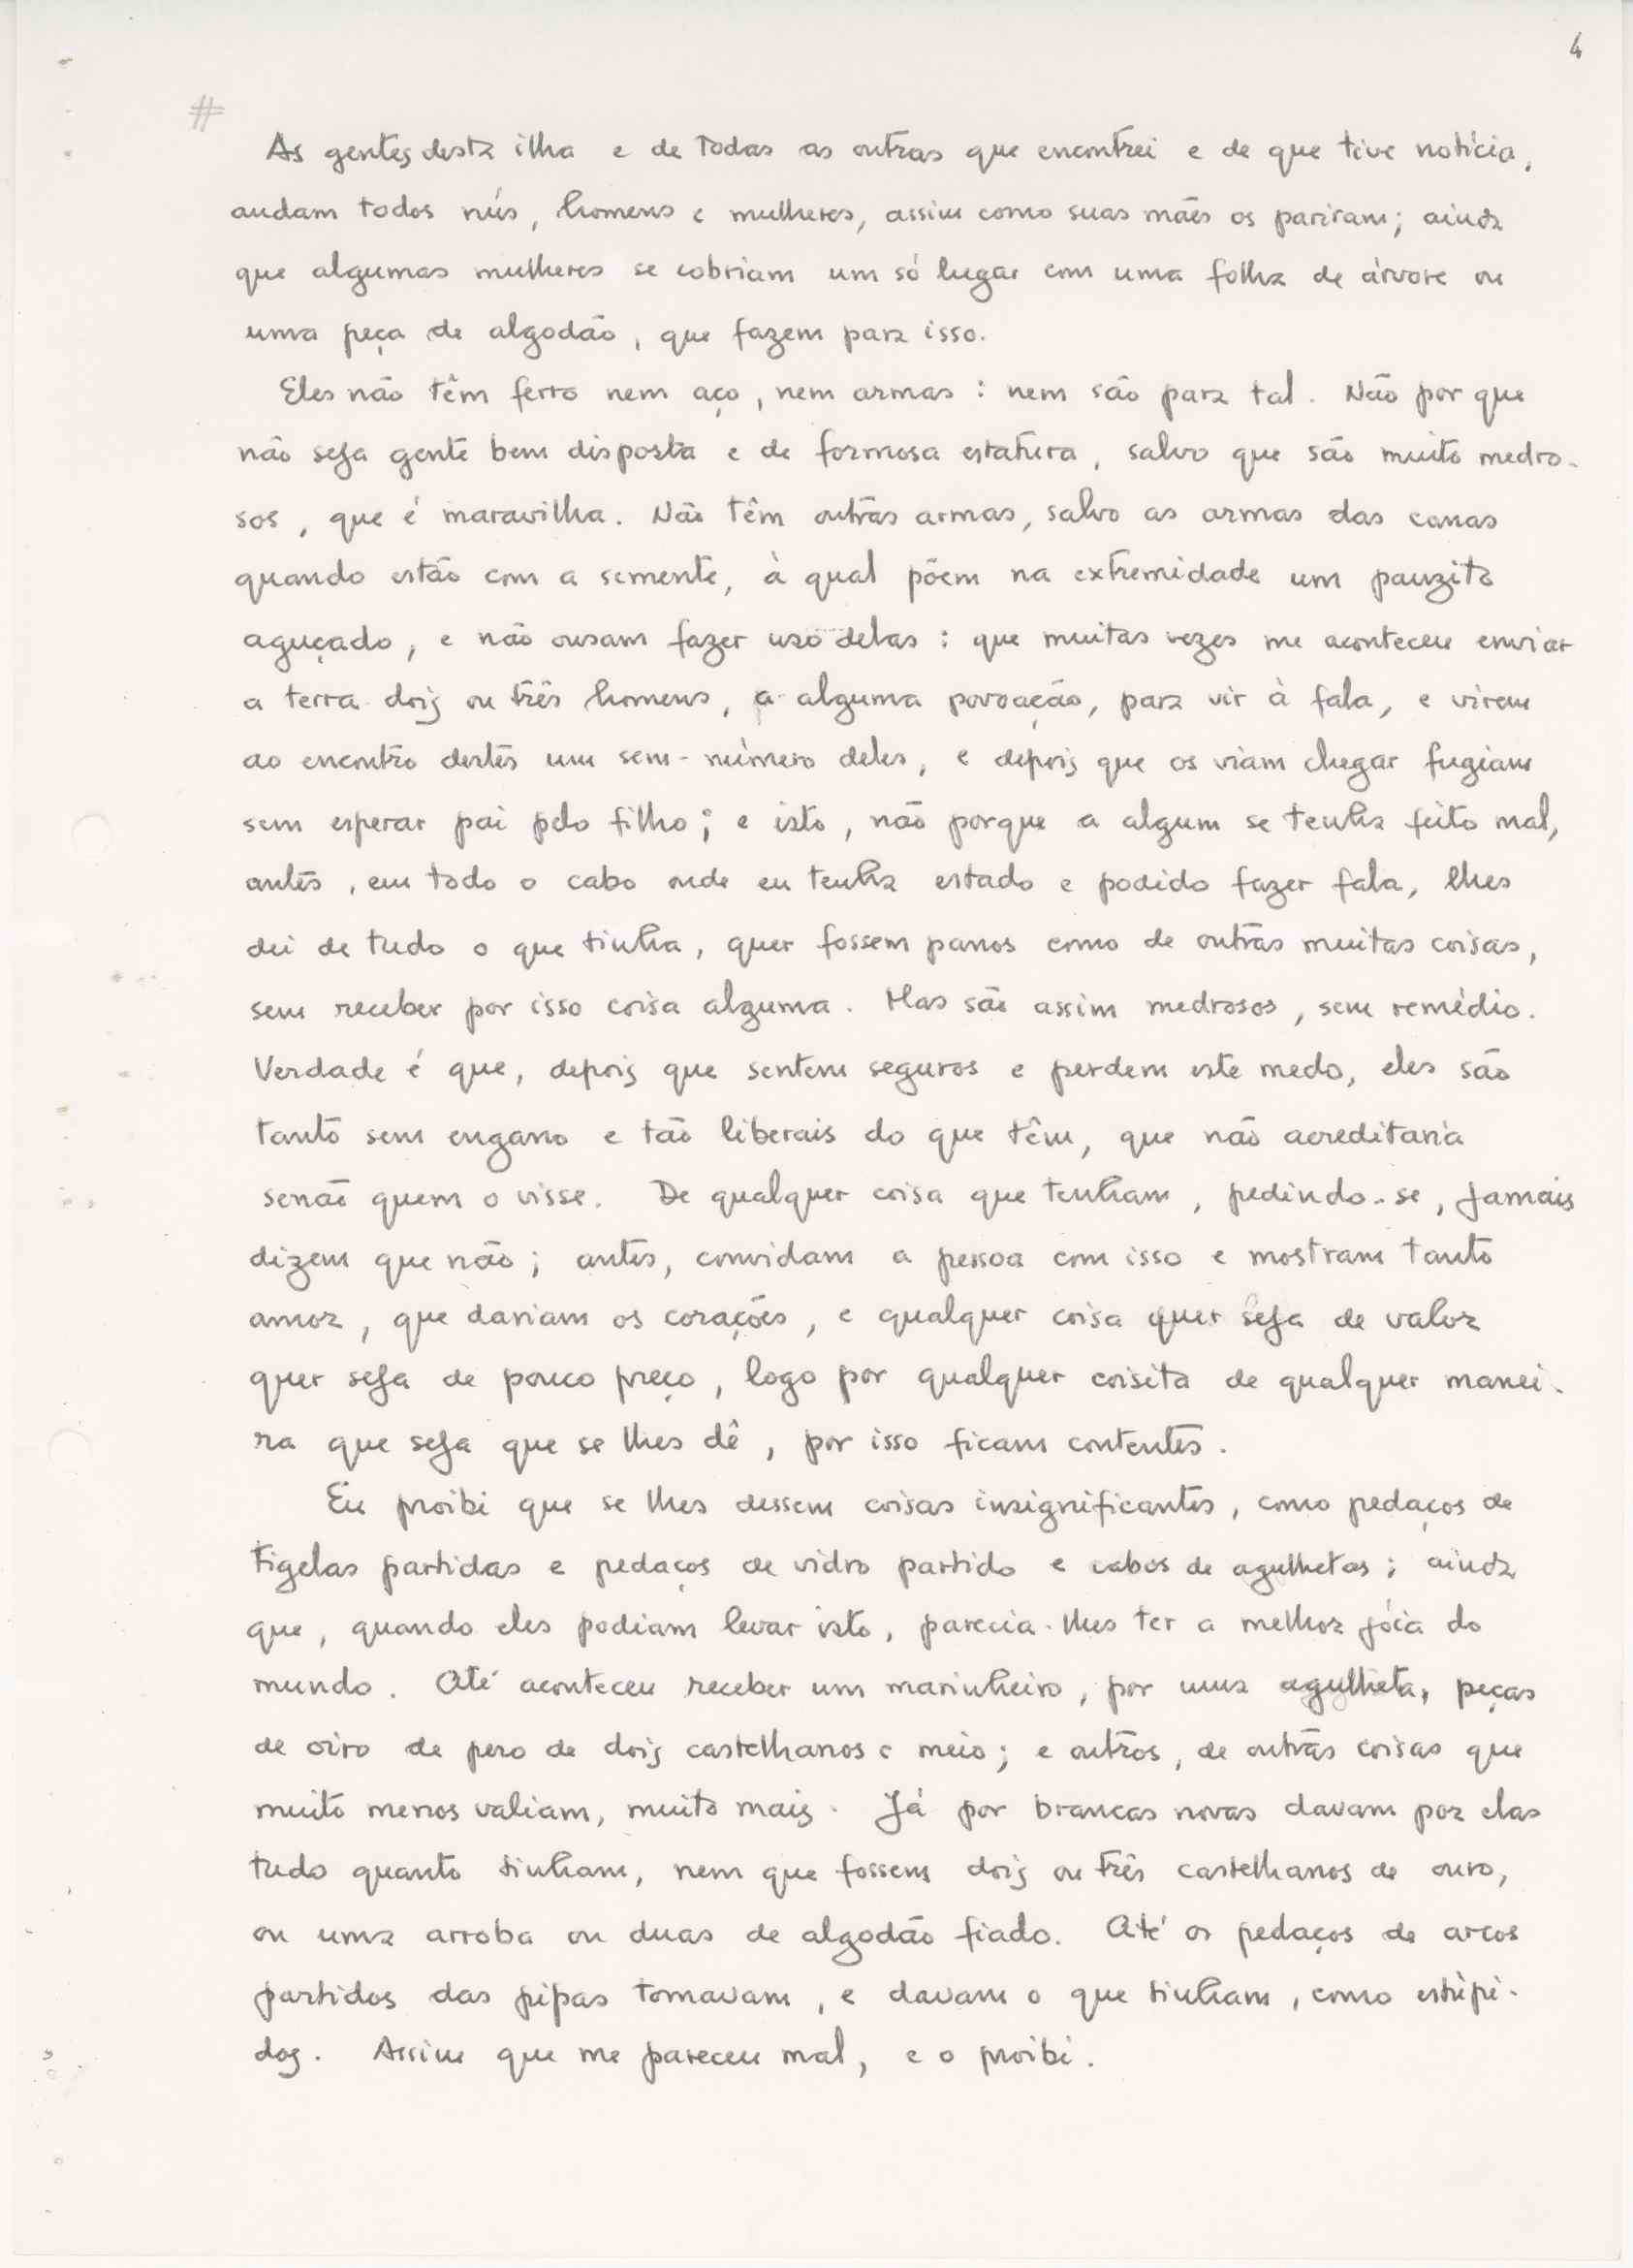 4
#
As gentes desta ilha e de todas as outras que encontrei e de que tive notícia,
andam todos nús, homens e mulheres, assim como suas mães os pariram; ainda
que algumas mulheres se cobriam um só lugar com uma folha de árvore ou
uma peça de algodão, que fazem para isso.
Eles não têm ferro nem aço, nem armas: nem são para tal. Não por que
não seja gente bem disposta e de formosa estatura, salvo que são muito medro-
sos, que é maravilha. Não têm outras armas, salvo as armas das canas
quando estão com a semente, à qual põem na extremidade um pauzito
aguçado, e não ousam fazer uso delas: que muitas vezes me aconteceu enviar
a terra dois ou três homens, a alguma povoação, para vir à fala, e virem
ao encontro destes um sem-número deles, e depois que os viam chegar fugiam
sem esperar pai pelo filho; e isto, não porque a algum se tenha feito mal,
antes, em todo o cabo onde eu tenha estado e podido fazer fala, lhes
dei de tudo o que tinha, quer fossem panos como de outras muitas coisas,
sem receber por isso coisa alguma. Mas são assim medrosos, sem remédio.
Verdade é que, depois que sentem seguros e perdem este medo, eles são
tanto sem engano e tão liberais do que têm, que não acreditaria
senão quem o visse. De qualquer coisa que tenham, pedindo-se, jamais
dizem que não; antes, convidam a pessoa com isso e mostram tanto
amor, que dariam os corações, e qualquer coisa quer seja de valor
quer seja de pouco preço, logo por qualquer coisita de qualquer manei-
ra que seja que se lhes dê, por isso ficam contentes.
Eu proibi que se lhes dessem coisas insignificantes, como pedaços de
tigelas partidas e pedaços de vidro partido e cabos de agulhetas; ainda
que, quando eles podiam levar isto, parecia-lhes ter a melhor jóia do
mundo. Até aconteceu receber um marinheiro, por uma agulheta, peças
de oiro de peso de dois castelhanos e meio; e outros, de outras coisas que
muito menos valiam, muito mais. Já por brancas novas davam por elas
tudo quanto tinham, nem que fossem dois ou três castelhanos de ouro,
ou uma arroba ou duas de algodão fiado. Até os pedaços de arcos
partidos das pipas tomavam, e davam o que tinham, como estúpi-
dos. Assim que me pareceu mal, e o proibi.